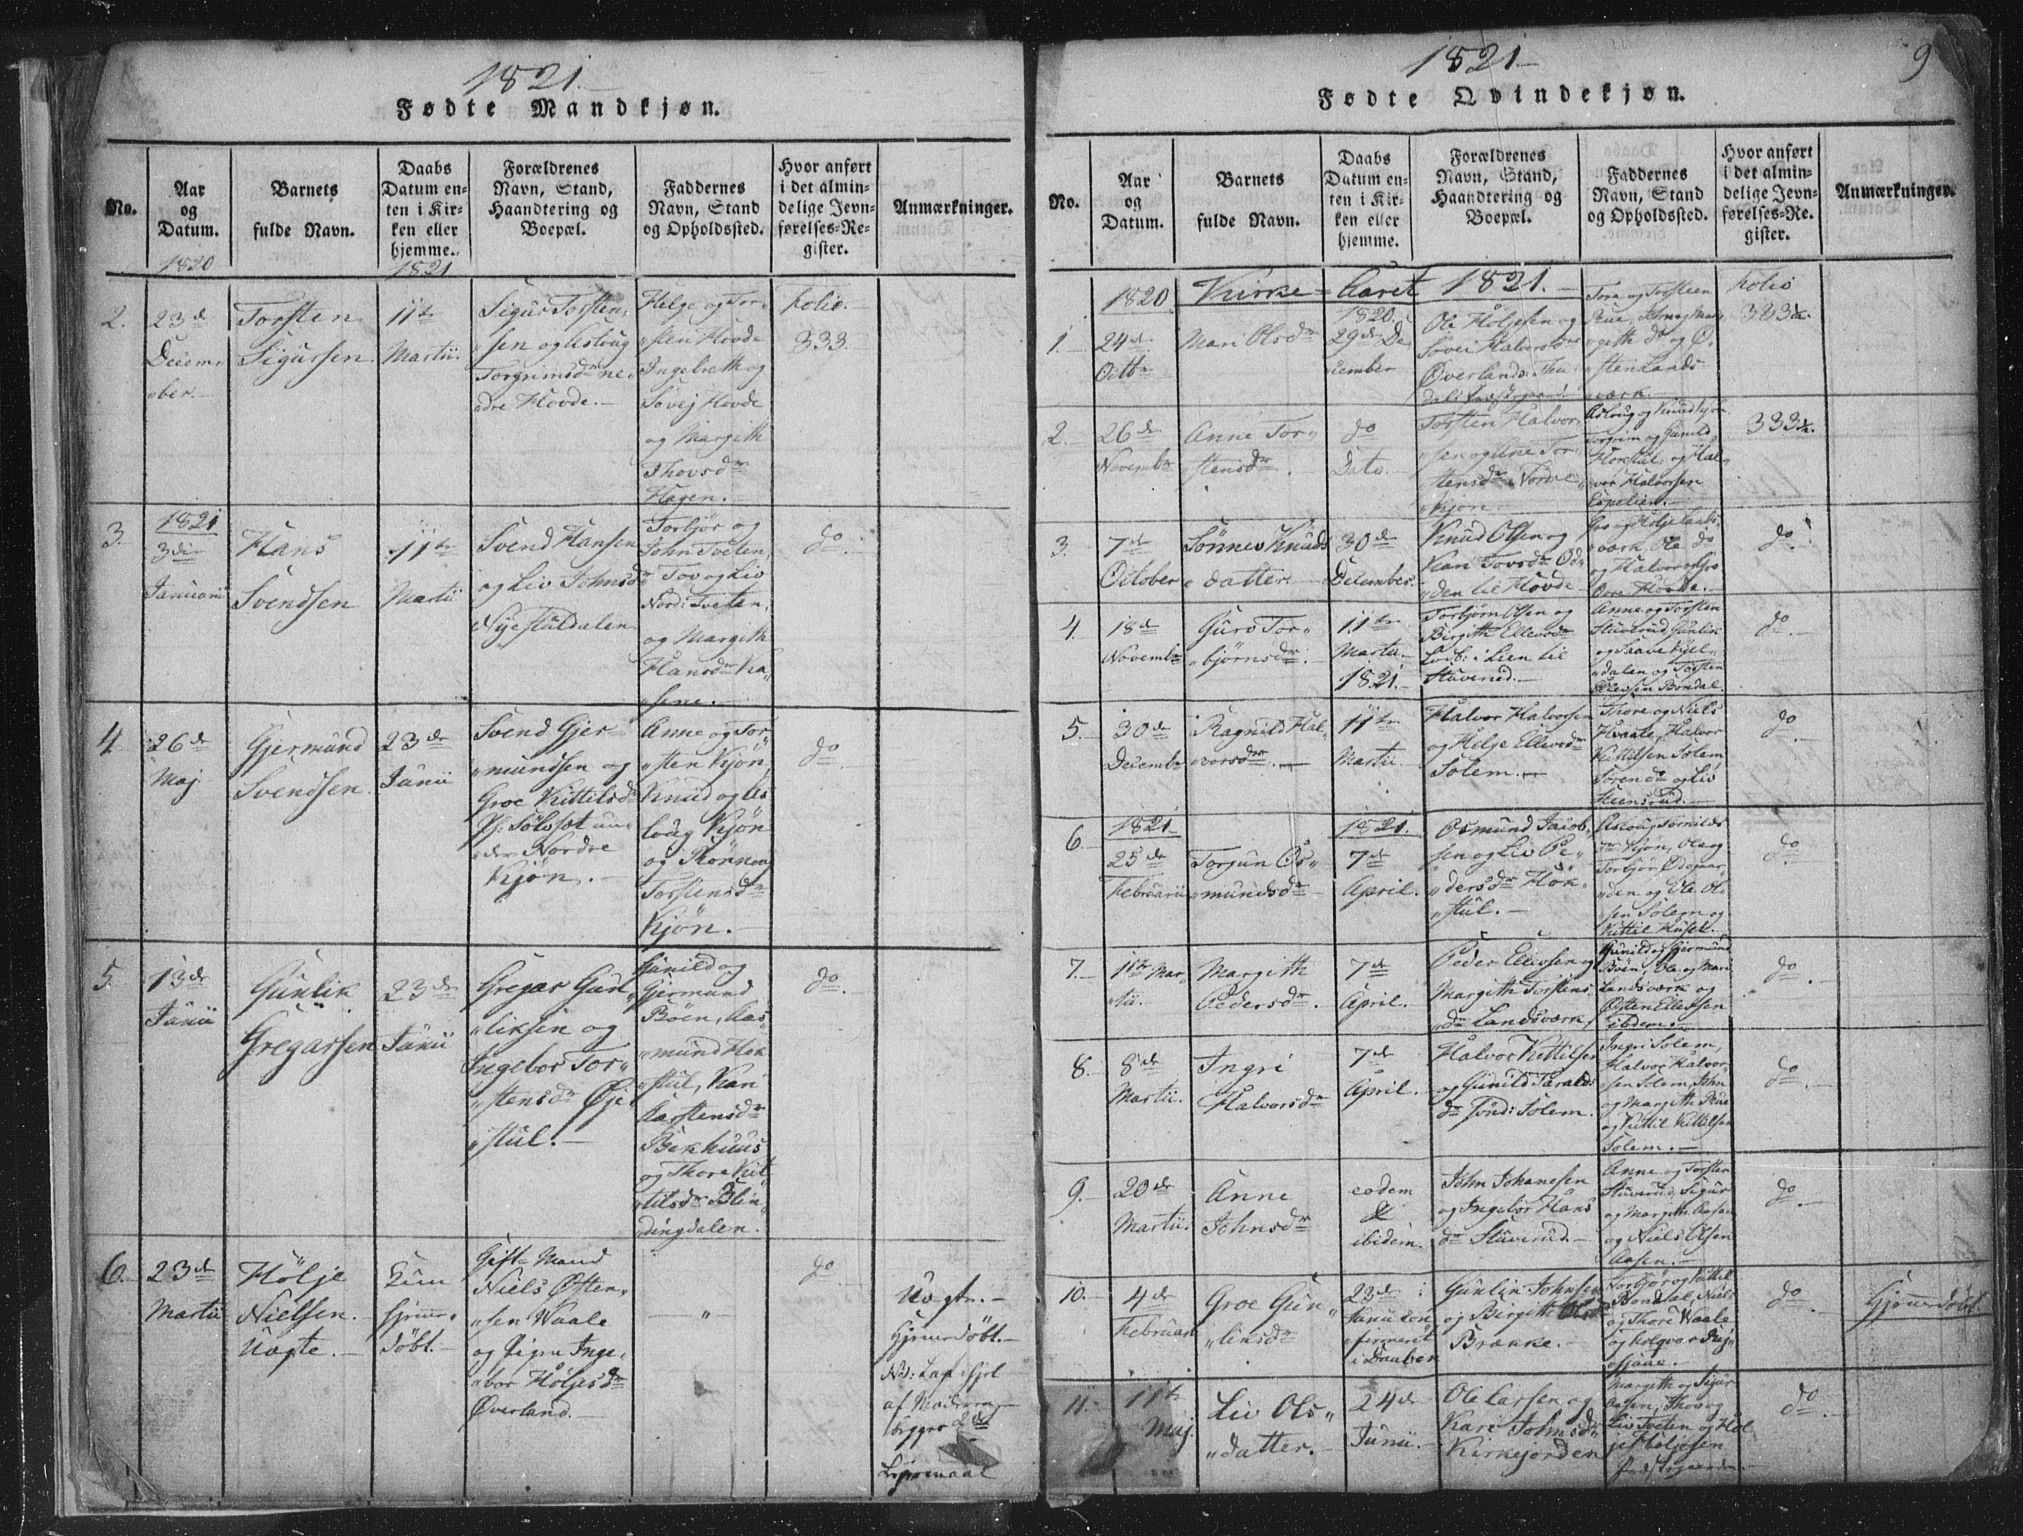 1821.
Fødte Mandkjøn.
No.
Aar
og
Datum.
Barnets
fulde Navn.
Daabs
Datum en-
ten i Kir-
ken eller
hjemme.
Forældrenes
Navn, Stand,
Haandtering og
Boepæl.
Faddernes
Navn, Stand
og Opholdssted.
Hvor anført
i det almin-
delige Jevn-
førelses-Re-
gister.
Anmærkninger.
1820
1821
2.
23de
Decem-
"ber.
Torsten
Sigursen.
11te
Martii.
Sigur Torsten-
"sen og Aslaug
Torgrimsdr ne-
"dre Hovde.
Helge og Tor-
"sten Hovde
Ingebreth og
Sovej Hovde
og Margith
Thovsdr
Hagen.
folio.
333.
3.
1821
3die
Januarii
Hans
Svendsen
11te
Martii
Svend Hansen
og Liv Johnsdr
Nyestuldalen
Torbjør og
John Tveten,
Tov og Liv
Nord: Tveten,
og Margith
Hansdr Ka-
"sene.
do.
4.
26de
Maj
Gjermund
Svendsen.
23de
Junii
Svend Gjer-
"mundsen og
Groe Kittilsdr
Pl: Sølsæt un-
"der Nordre
Kjøn.
Anne og Tor-
"sten Kjøn,
Knud og As-
loug Kjøn
og Rønnoug
Torstensdr
Kjøn.
do
5.
13de
Junii
Gunlik
Gregarsen
23de
Junii
Gregar Gun-
"liksen og
Ingebor Tor-
"stensdr Øje-
"stul.
Gunild og
Gjermund
Bøen, Aas-
"mund Høk-
"stul, Kari
Karstensdr
Bekhuus
og Thore Kit-
"tilsdr Blin-
"dingdalen.
do.
6.
23de
Martii
Hølje
Nielsen.
Uægte.
Kun
hjemme-
døbt.
Gift-Mand
Niels Østen-
"sen Waale
og Pigen Inge-
"bor Høljesdr
Øverland.
"
do
Uægte.
Hjemmedøbt.
NB:
af Moderen,
2det
Lejermaal
1821
9
Fødte Qvindekjøn.
No.
Aar
og
Datum.
Barnets
fulde Navn.
Daabs
Datum en-
ten i Kir-
ken eller
hjemme.
Forældrenes
Navn, Stand,
Haandtering og
Boepæl.
Faddernes
Navn, Stand
og Opholdssted.
Hvor anført
i det almin-
delige Jevn-
førelses-Re-
gister.
Anmærkninger.
1820 Kirke-Aaret 1821.
1820.
1.
24de
Octbr
Mari Olsdr
29de De-
cember
Ole Høljesen og
Sovei Halvorsdr
Øverlands:
Tore og Torsteen
Rue, John og Mar-
"geth do og Ø-
"sten Lands-
"værk.
folio
333
2.
26de
Novembr
Anne Tor-
"stensdr.
do
Dato.
Torsten Halvor-
"sen og Ane Tor-
"stensdr Nordre
Kjøn.
Asloug og Knud Kjøn
Torgrim og Gunild
Høkstul, og Hal-
vor Halvorsen
Espelien.
333
3.
7de
October
Sønnev Knuds-
"datter.
30de
December
Knud Olsen og
Kari Tovsdr Od-
"den til Hovde
Gro og Hølje Lands-
"værk, Ole do
og Halvor og Gro
Øvre Hovde.
do.
4.
18de
Novembr
Guro Tor-
"bjørnsdr.
11te
Martii
1821.
Torbjørn Olsen og
Birgith Ellevsdr
i Lien til
Stuverud.
Anne og Torsten
Stuverud, Gunlik
og Saave Kjel-
"dalen og Torsten
Ellevsen Bondal.
do.
5.
30de
Decembr
Ragnild Hal-
"vorsdr.
11te
Martii.
Halvor Halvorsen
og Helje Ellevsdr
Solem.
Thore og Niels
Hvaale, Halvor
Kittilsen Solem
Søren do og Liv
Steensrud.
do
6.
1821
25de
Februarii
Torjun Os-
"mundsdr
1821.
7de
April.
Osmund Jacob-
sen og Liv Pe-
"dersdr Høk-
"stul.
Asloug Tornilds-
dr Kjøn, Ole og
Torbjør Ødegaar-
"den og Ole Ol-
"sen Solem og
Kittil Huset.
do.
7.
11te Mar-
"tii.
Margith
Pedersdr.
7de
April.
Peder Ellevsen og
Margith Torstens-
"dr Landsværk,
Gunild og Gjermund
Bøen, Ole og Mari
Landsværk og
Østen Ellevsen
ibdem.
do.
8.
8de
Martii.
Ingri
Halvorsdr
7de
April.
Halvor Kittilsen
og Gunild Taralds-
dr Sønd: Solem.
Ingri Solem,
Halvor Halvor-
"sen Solem, John
og Margith Rue
og Kittil Kittilsen
Solem.
do.
9.
20de
Martii.
Anne
Johnsdr
eodem
&
ibidem.
John Johanesen
og Ingebor Hans-
dr Stuverud.
Anne og Torsten
Stuverud, Sigur
og Margith Aasen
og Niels Olsen
Aasen.
do
10.
4de
Februari
Groe Gun-
"linsdr
23de
Junii con-
"firmeret
i Daaben
Gunlin Johnsen
og Birgith Olsdr
Brakke.
Torbjør og Kittil
Bondal, Niels
og Thore Waale
og
do.
Hjemedøbt
11.
11te
Maj
Liv Ols-
"datter.
24de
Junii.
Ole Larsen og
Kari Johnsdr
Kirkejorden
Margith og Sigur
Aasen, Thov og
Liv Tveten og Høl-
je Høljesen
Præstegaarden.
do.